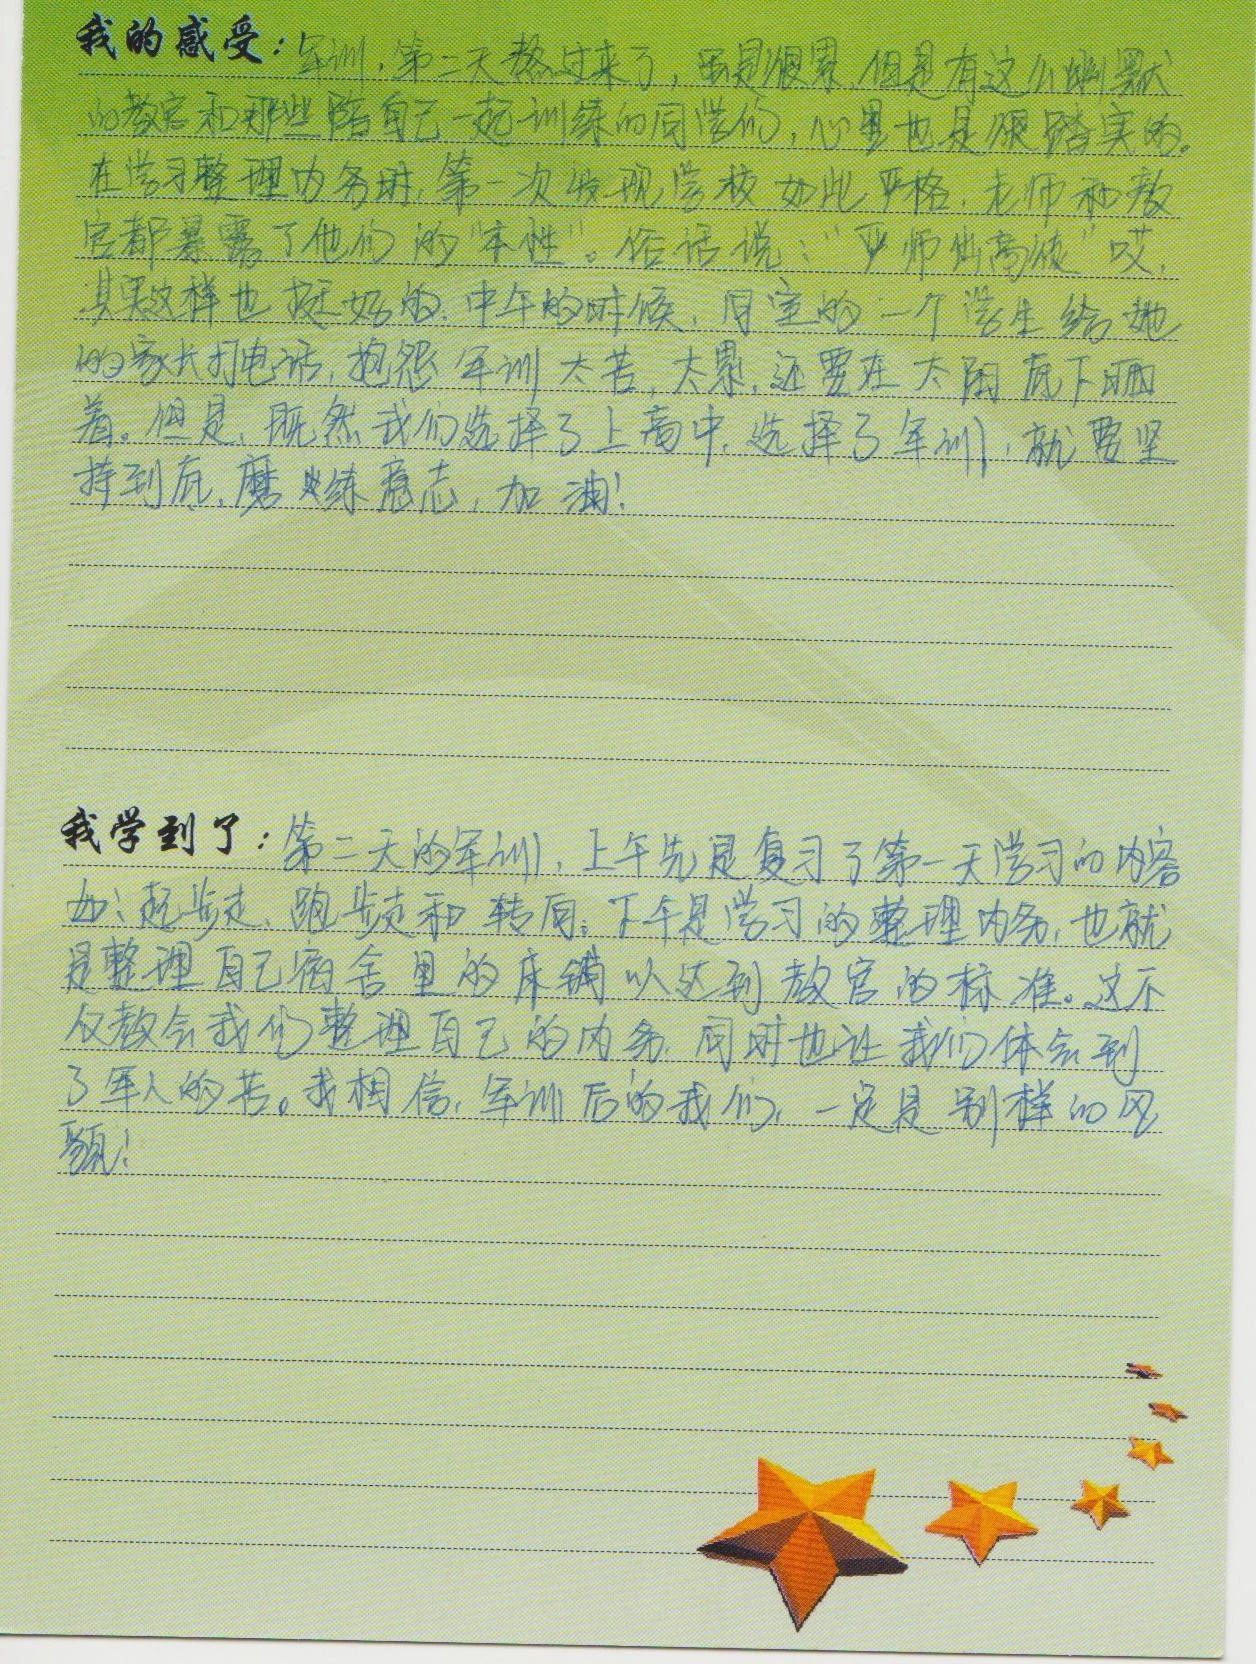 我的感受：军训，第二天熬过来了，虽是很累，但是有这么幽默
的教官和那些陪自己一起训练的同学们，心里也是很踏实的。
在学习整理内务时，第一次发现学校如此严格，老师和教
官都暴露了他们的“本性”。俗话说：“严师出高徒”哎，
其实这样也挺好的。中午的时候，同室的一个学生给她
的家长打电话，抱怨军训太苦，太累，还要在太阳底下晒
着。但是，既然我们选择了上高中，选择了军训，就要坚
持到底，磨练意志，加油！
我学到了：第二天的军训，上午先是复习了第一天学习的内容
如：起步走、跑步走和转向；下午是学习的整理内务，也就
是整理自己宿舍里的床铺以达到教官的标准。这不
仅教会我们整理自己的内务，同时也让我们体会到
了军人的苦。我相信，军训后的我们，一定是别样的风
貌！